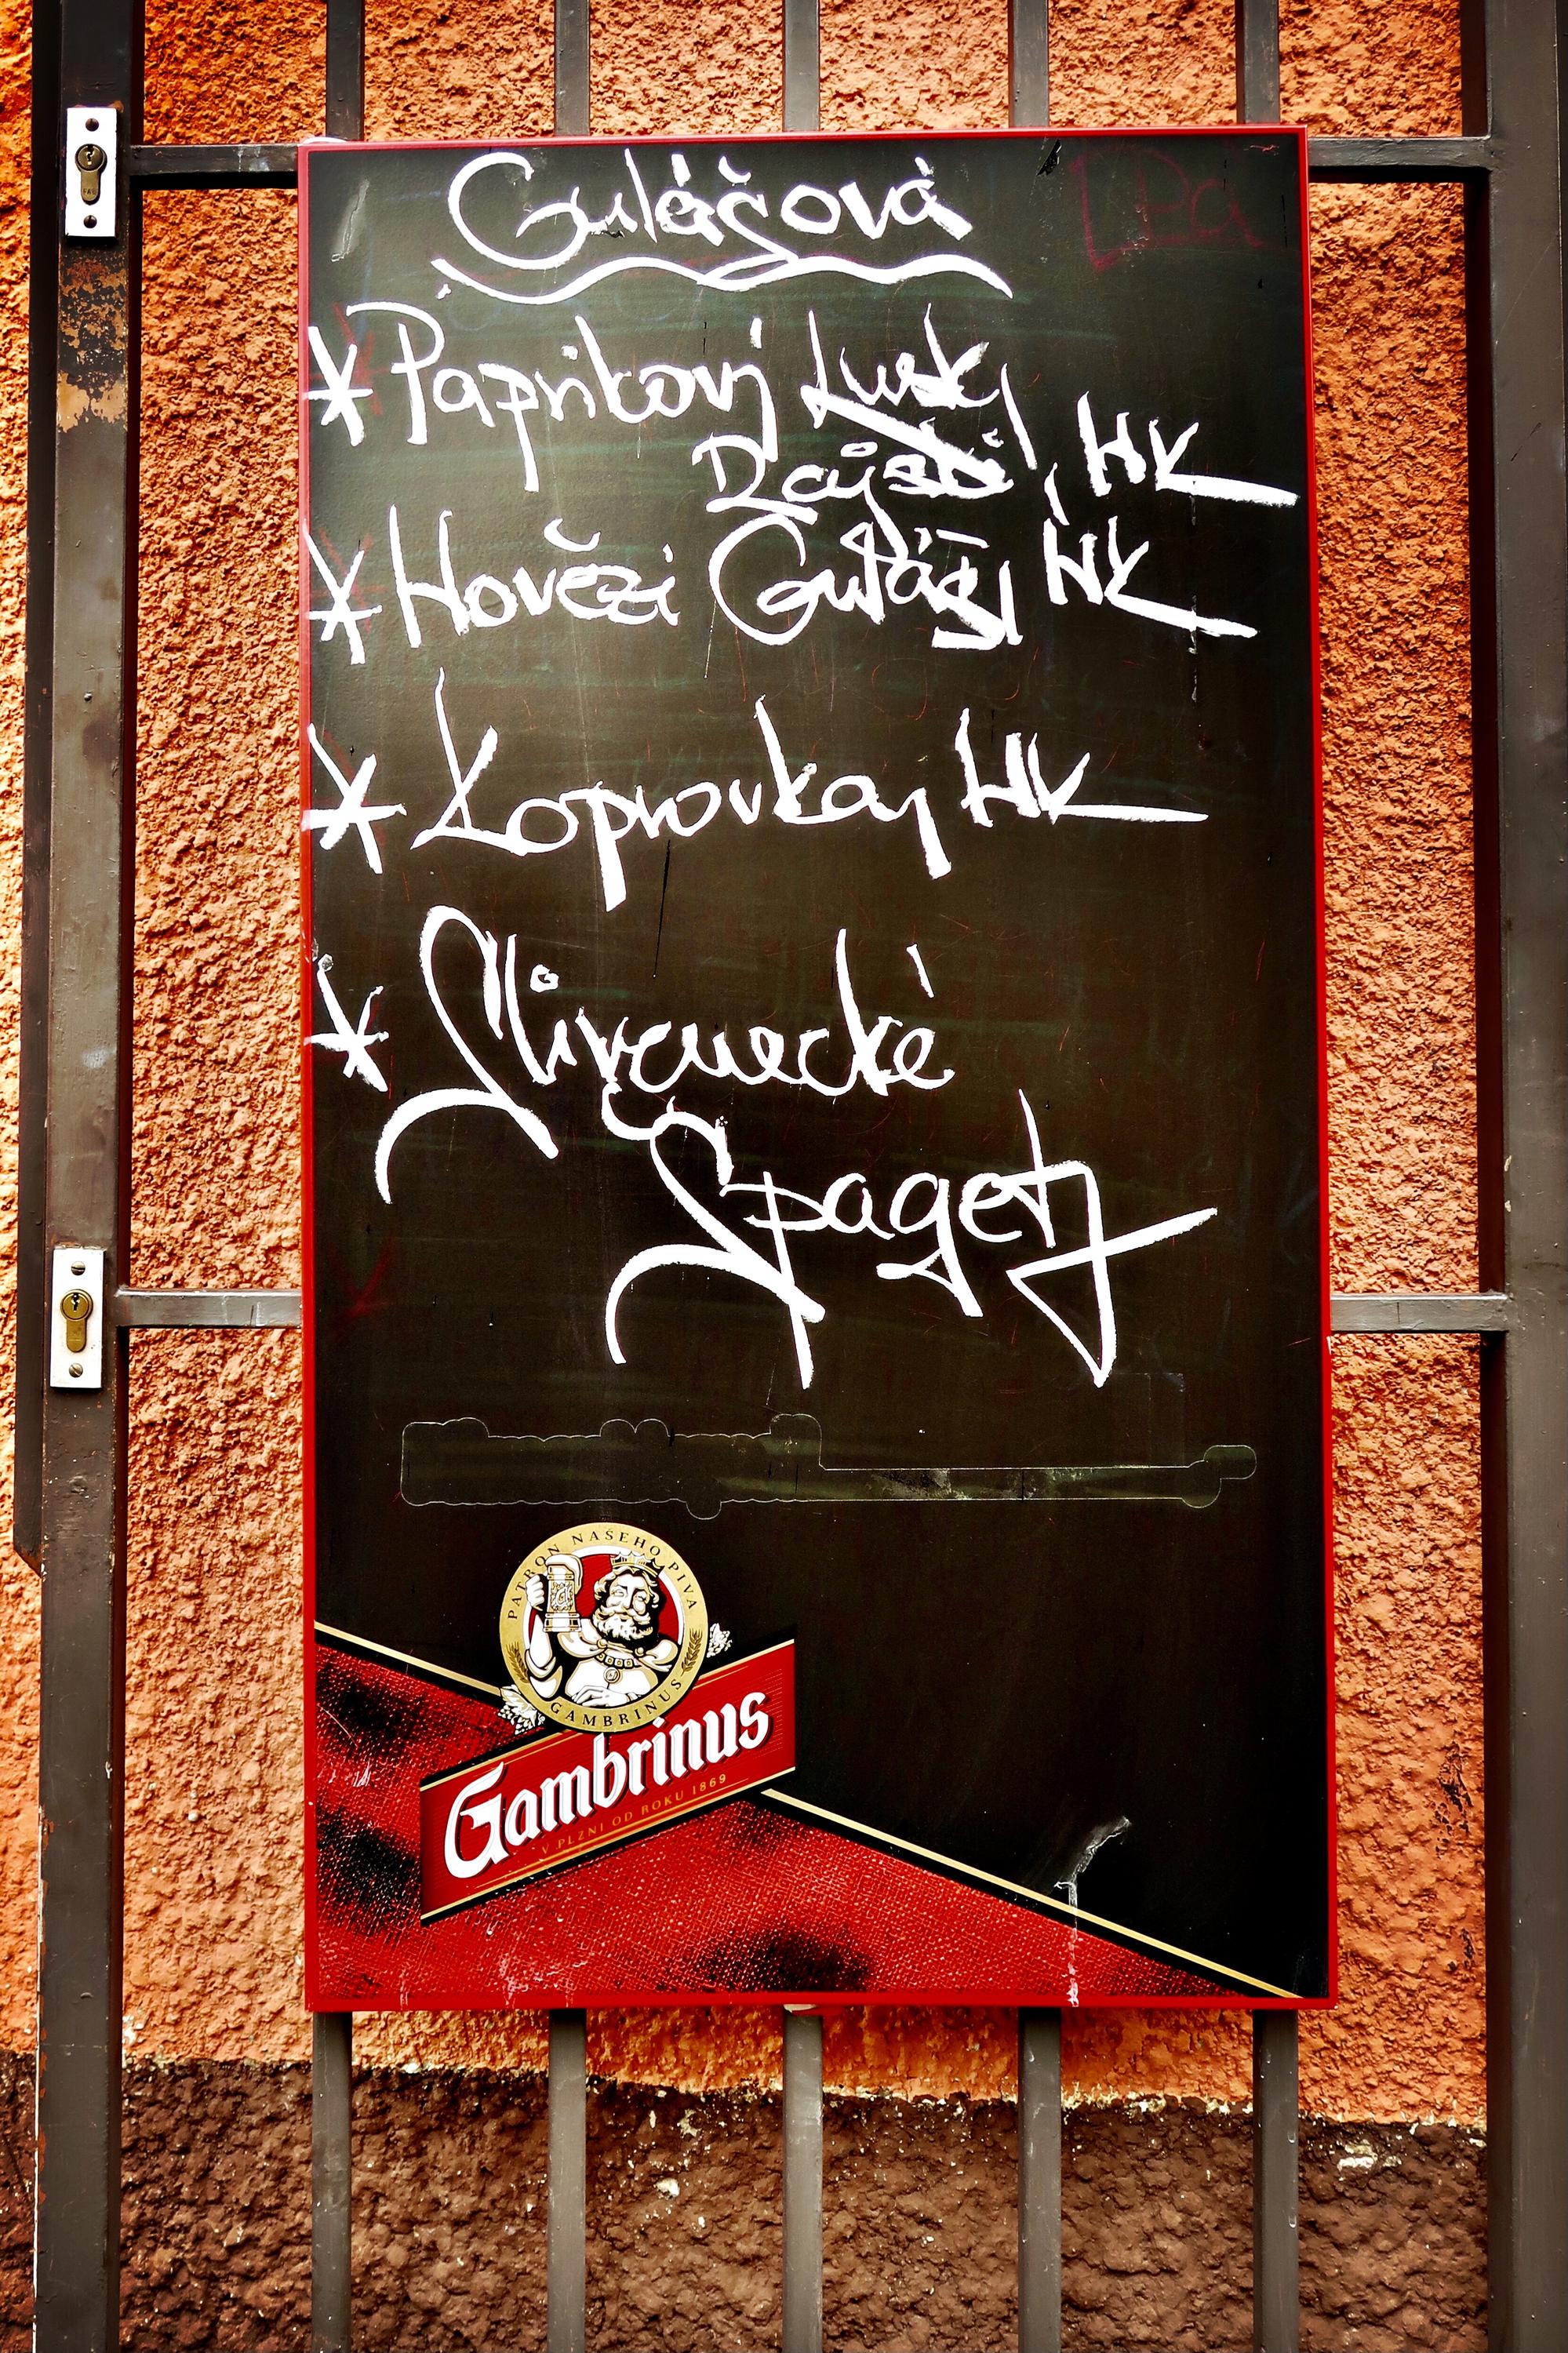 Gulášová
* Paprikový Lusky
Rajská, HK
* Hovězí Guláš, HK
* Koprovka, HK
* Slivenecké
Špagety
PATRON NAŠEHO PIVA
GAMBRINUS
Gambrinus
V PLZNI OD ROKU 1869